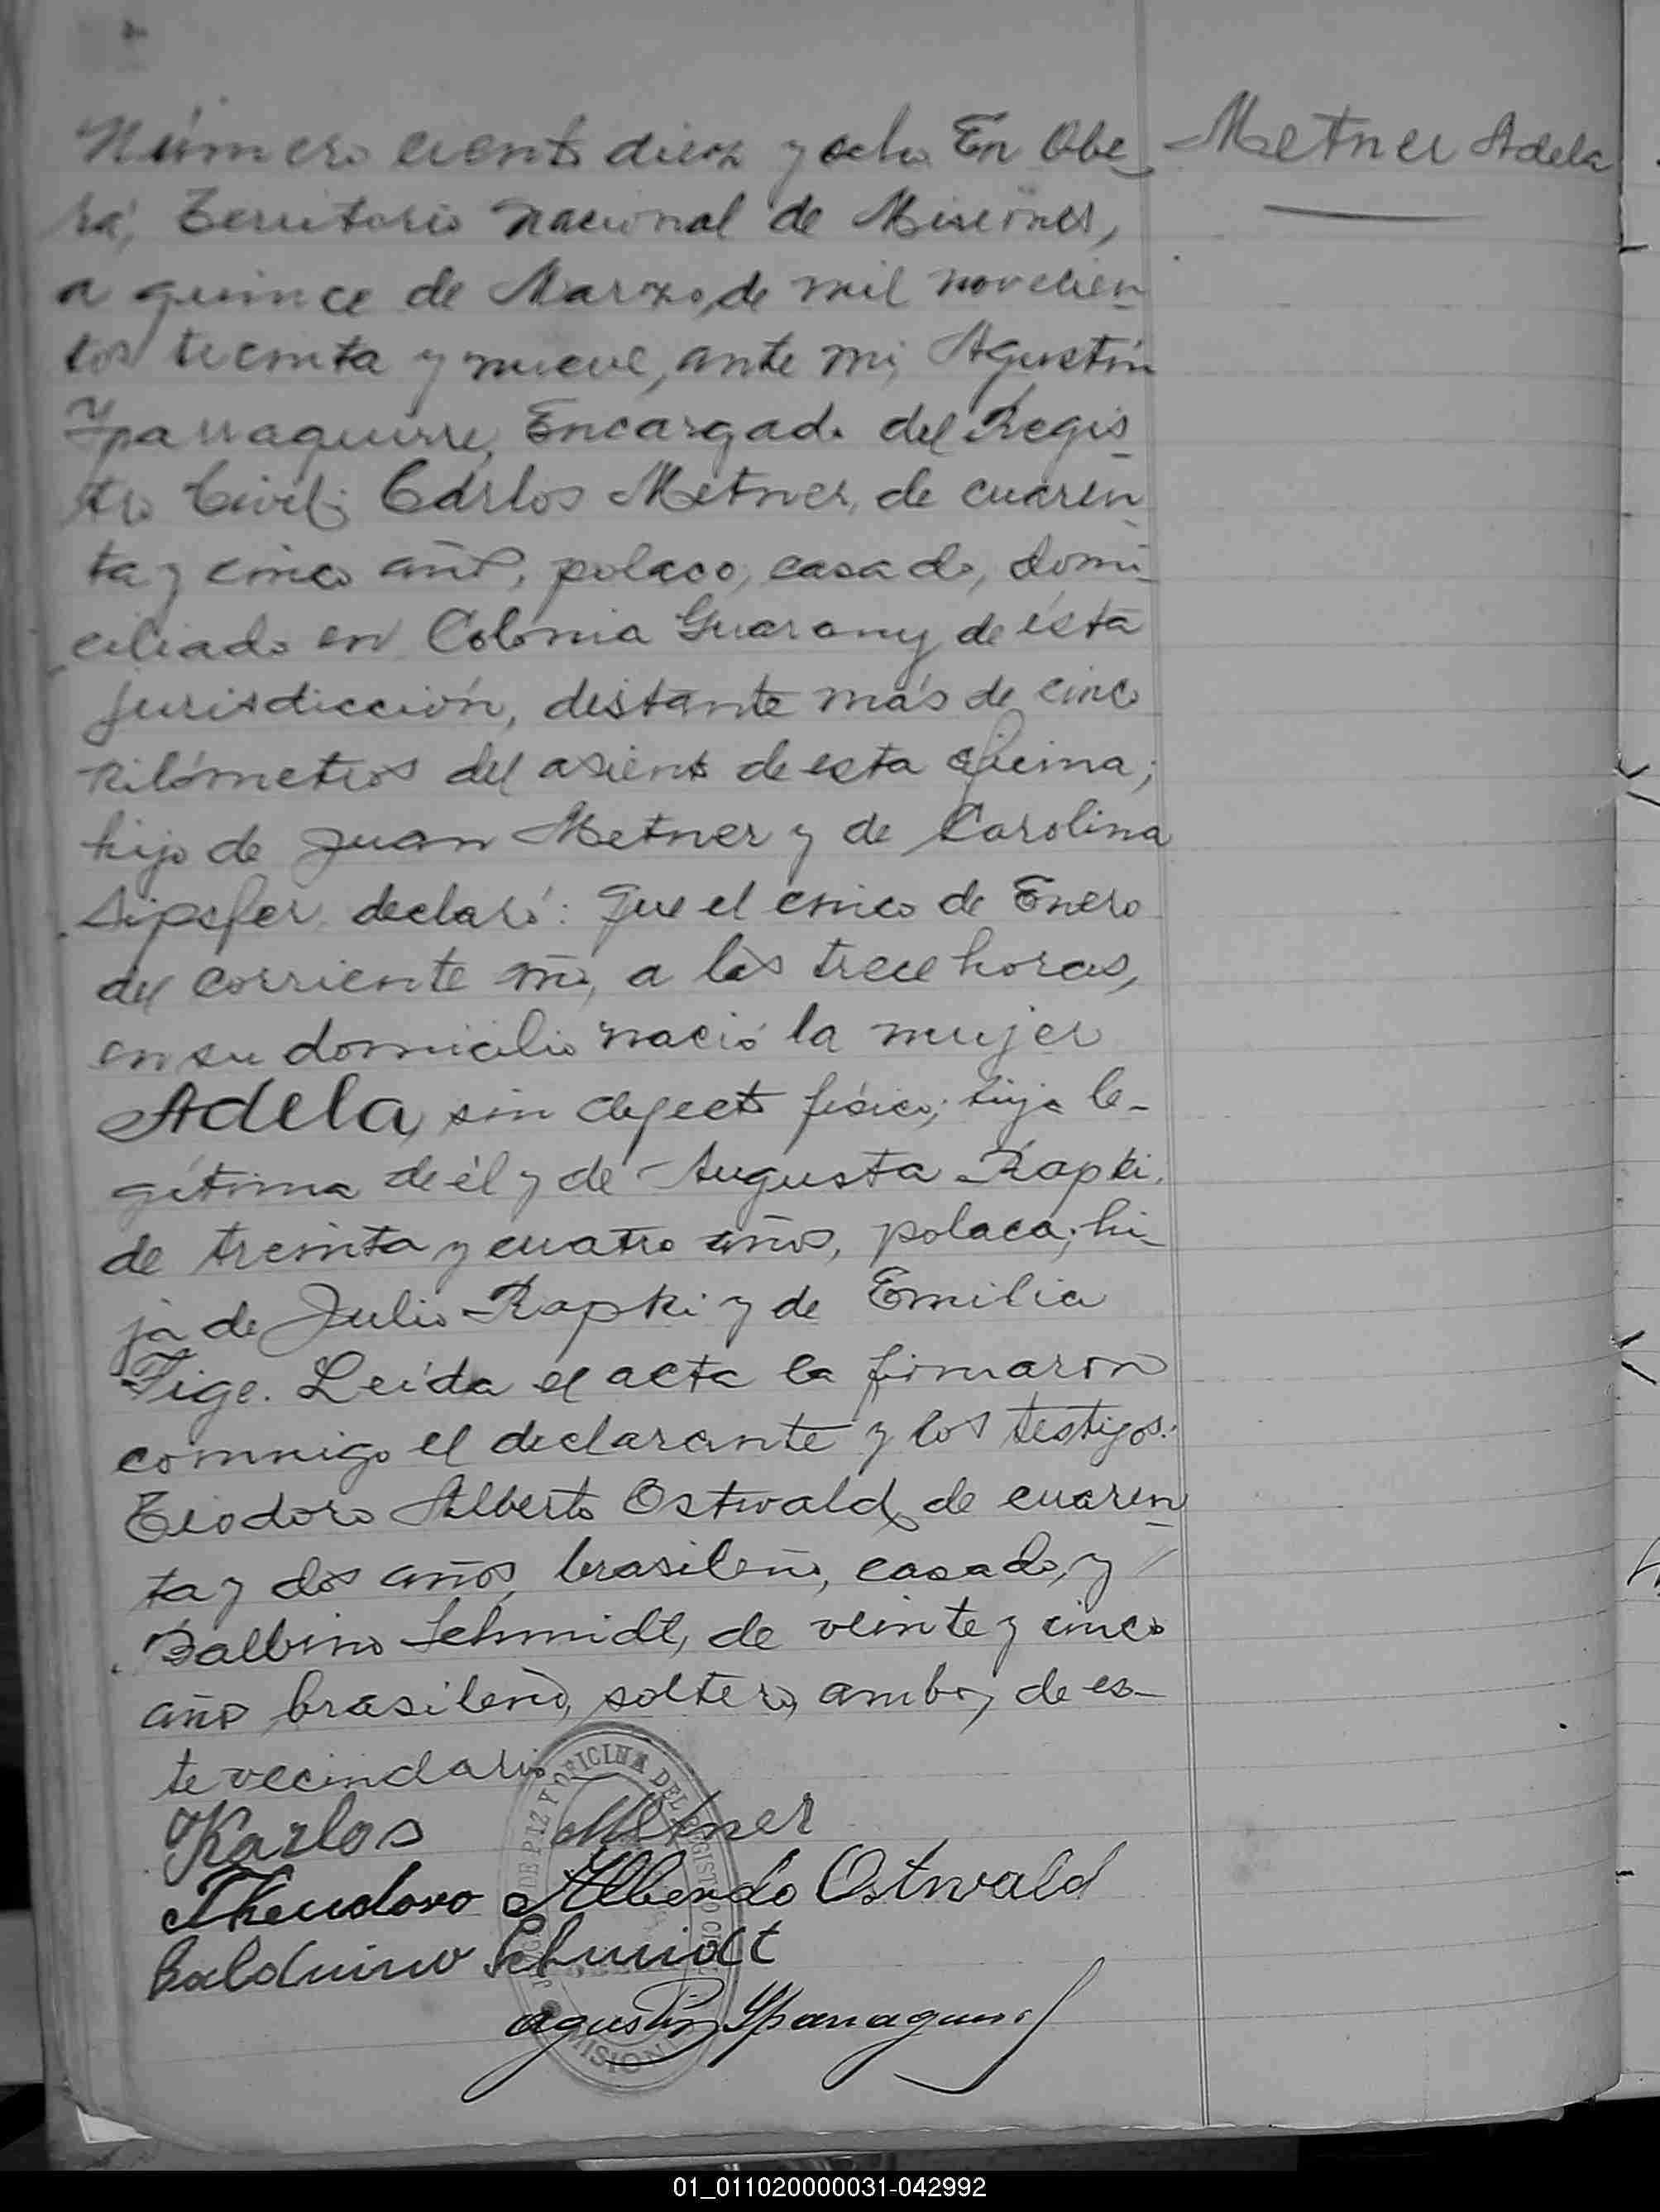 Número ciento diez y ocho. En Obe-
rá, Territorio Nacional de Misiones,
a quince de Marzo, de mil novecien-
tos treinta y nueve, ante mi, Agustín
Yparraguirre, Encargado del Regis-
tro Civil; Cárlos Metner, de cuaren-
ta y cinco años, polaco, casado, domi-
ciliado en Colonia Guarany de ésta
jurisdicción, distante más de cinco
kilómetros del asiento de esta oficina;
hijo de Juan Metner y de Carolina
Sipsfer declaró: Que el cinco de Enero
del corriente año, a las trece horas,
en su domicilio nació la mujer
Adela, sin defecto físico; hija le-
gítima de él y de Augusta Rapki,
de treinta y cuatro años, polaca; hi-
ja de Julio Rapki y de Emilia
Tige. Leída el acta la firmaron
conmigo el declarante y los testigos:
Teodoro Alberto Ostwald, de cuaren-
ta y dos años, brasileño, casado, y
Balbino Schmidt, de veinte y cinco
años, brasileño, soltero, ambos de es-
te vecindario
Metner Adela
Karlos Metner
Theudoro Alberdo Ostwald
Balduino Schmidt
Agustín Yparraguirre
JUZGADO DE PAZ Y OFICINA DEL REGISTRO CIVIL
MISIONES
01_011020000031-042992